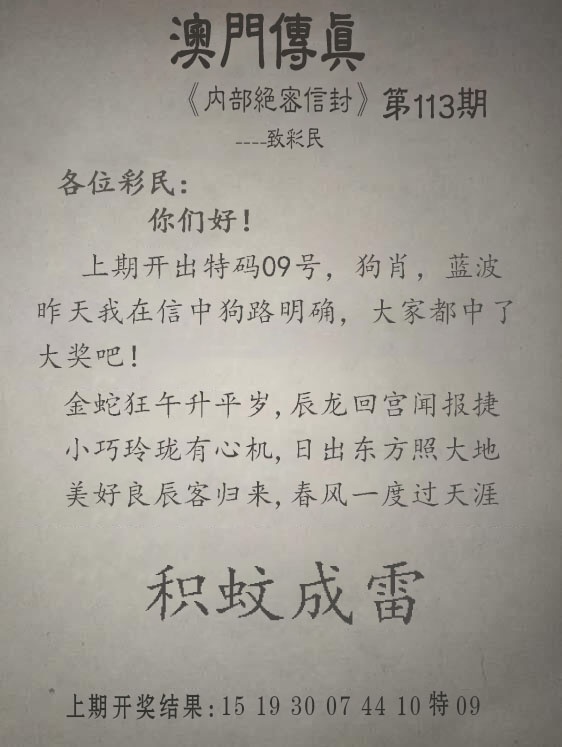 澳門傳真
《内部絕密信封》第113期
----致彩民
各位彩民:
你们好!
上期开出特码09号,狗肖,蓝波
昨天我在信中狗路明确,大家都中了
大奖吧!
金蛇狂午升平岁,辰龙回宫闻报捷
小巧玲珑有心机,日出东方照大地
美好良辰客归来,春风一度过天涯
积蚊成雷
上期开奖结果:15 19 30 07 44 10 特 09